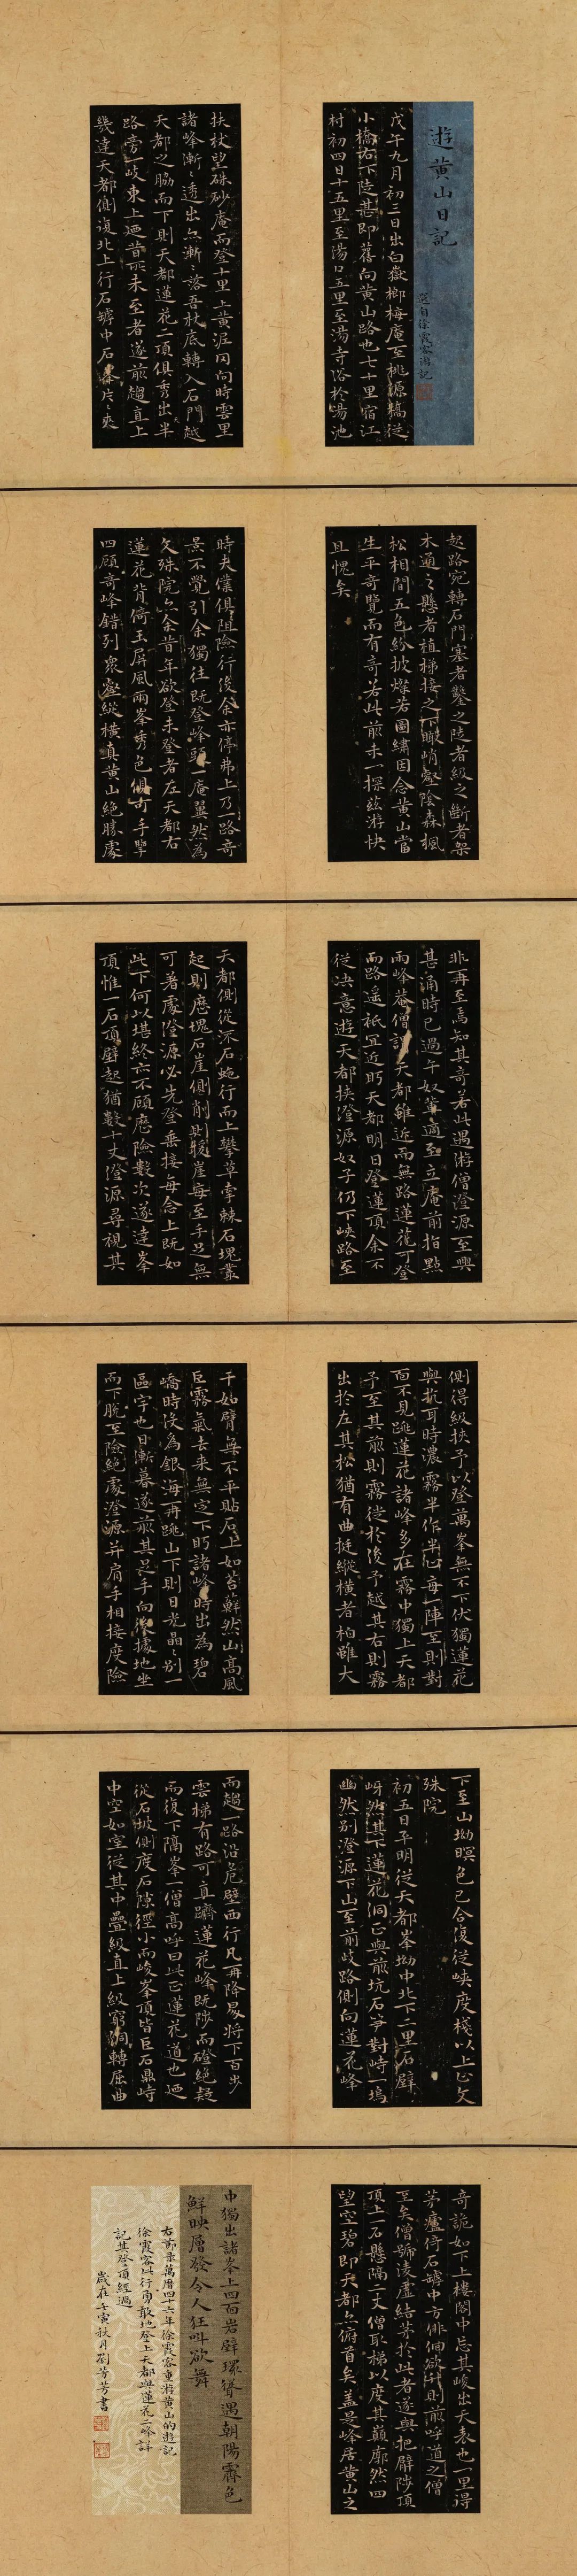 遊黃山日記
選自徐霞客游記
戊午九月初三日出白嶽榔梅庵至桃源橋從
小橋右下陡甚即舊向黃山路也七十里宿江
村初四日十五里至湯口五里至湯寺浴於湯池
扶杖望硃砂庵而登十里上黃泥岡向時雲里
諸峰漸〻透出亦漸〻落吾杖底轉入石門越
天都之脇而下則天都蓮花二頂俱秀出半
路旁一岐東上迺昔所未至者遂前趨直上
幾達天都側復北上行石罅中石峰片〻夾
起路宛轉石門塞者鑿之陡者級之斷者架
木通之懸者植梯接之下瞰峭壑陰森楓
松相間五色紛披燦若圖繡因念黃山當
生平奇覽而有奇若此前未一探茲游快
且愧矣
時夫僕俱阻險行後余亦停弗上乃路奇
景不覺引余獨往既登峰頭一庵翼然為
文殊院亦余昔年欲登未登者左天都右
蓮花背倚玉屏風兩峯秀色俱可手擥
四顧奇峰錯列衆壑縱橫真黃山絕勝處
非再至焉知其奇若此遇游僧澄源至興
甚涌時已過午奴輩適至立庵前指點
兩峰菴僧謂天都雖近而無路蓮花可登
而路遙祇宜近盻天都明日登蓮頂余不
從決意遊天都挾澄源奴子仍下峽路至
天都側從流石蛇行而上攀草牽棘石塊叢
起則歷塊石崖側削則援崖每至手足無
可著處澄源必先登垂接每念上既如
此下何以堪終亦不顧歷險數次遂達峯
頂惟一石頂壁起猶數十丈澄源尋視其
側得級挾予以登萬峯無不下伏獨蓮花
與抗耳時濃霧半作半止每一陣至則對
面不見眺蓮花諸峰多在霧中獨上天都
予至其前則霧徙於後予越其右則霧
出於左其松猶有曲挺縱橫者柏雖大
干如臂無不平貼石上如苔蘚然山高風
巨霧氣去來無定下盻諸峰時出為碧
嶠時沒為銀海再眺山下則日光晶〻別一
區宇也日漸暮遂前其足手向後據地坐
而下脫至險絕處澄源并肩手相接度險
下至山坳暝色已合復從峽度棧以上止文
殊院
初五日平明從天都峯坳中北下二里石壁
岈然其下蓮花洞正與前坑石笋對峙一塢
幽然別澄源下山至前岐路側向蓮花峰
而趨一路沿危壁西行凡再降昜將下百步
雲梯有路可直躋蓮花峰既陟而磴絕疑
而復下隔峯一僧高呼曰此正蓮花道也迺
從石坡側度石隙徑小而峻峯頂皆巨石鼎峙
中空如室從其中疊級直上級窮洞轉屈曲
奇詭如下上樓閣中忘其峻出天表也一里得
茅廬倚石罅中方徘徊欲開則前呼道之僧
至矣僧號淩虛結茅於此者遂與把臂陟頂
頂上一石懸隔二丈僧取梯以度其巔廓然四
望空碧即天都亦俯首矣蓋是峰居黃山之
中獨出諸峯上四面岩壁環聳遇朝陽霽色
鮮映層發令人狂叫欲舞
右節录萬曆四十六年徐霞客重游黃山的遊記
徐霞客此行勇敢地登上天都與蓮花二峰詳
記其登頂經過
歲在壬寅秋月劉芳芳書